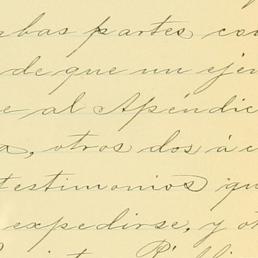 mbas partes con
de que un ejem
e al Apéndic
a, otros dos á c
testimonios qu
expedirse, y ot